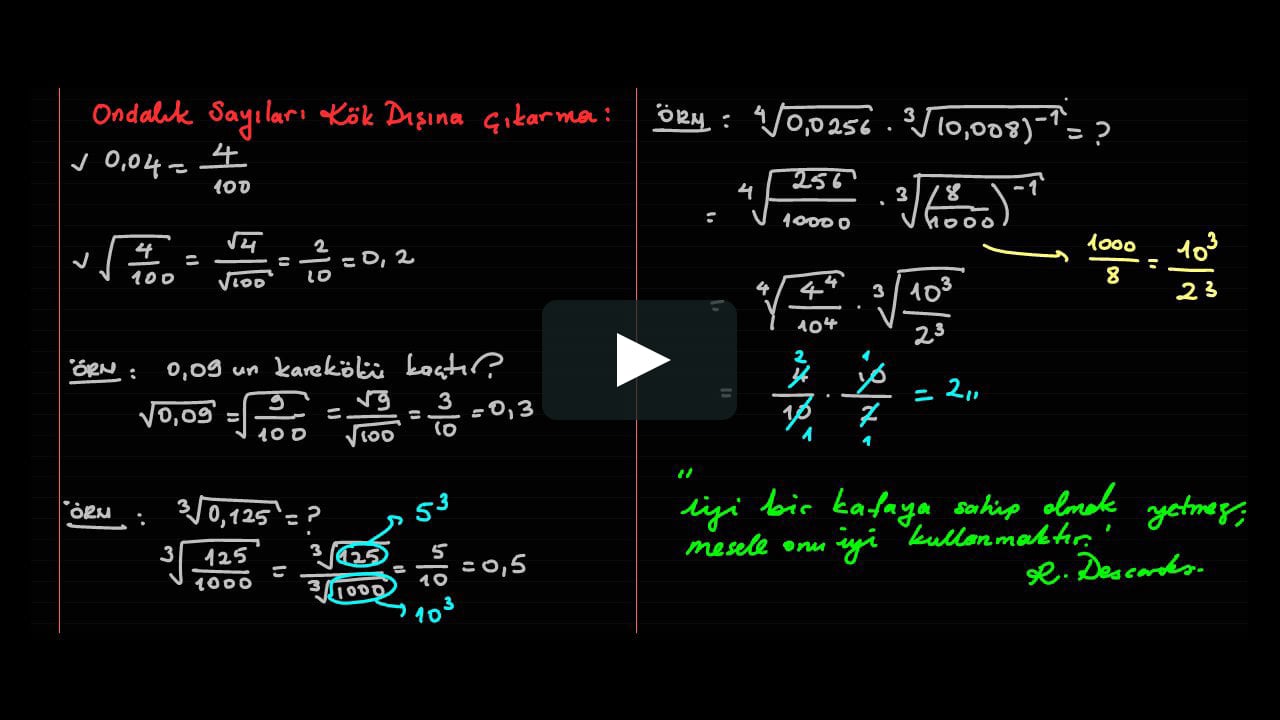 Ondalık Sayıları Kök Dışına Çıkarma:
√ 0,04 = 4/100
√ √(4/100) = √4/√100 = 2/10 = 0,2
ÖRN : 0,09 un karekökü kaçtır?
√0,09 = √(9/100) = √9/√100 = 3/10 = 0,3
ÖRN : ³√0,125 = ?
5³
³√(125/1000) = ³√125/³√1000 = 5/10 = 0,5
10³
ÖRN : ⁴√0,0256 · ³√(0,008)⁻¹ = ?
= ⁴√(256/10000) · ³√(8/1000)⁻¹
1000/8 = 10³/2³
= ⁴√(4⁴/10⁴) · ³√(10³/2³)
= 4/10 · 10/2 = 2,,
"İyi bir kafaya sahip olmak yetmez;
mesele onu iyi kullanmaktır."
R. Descartes.